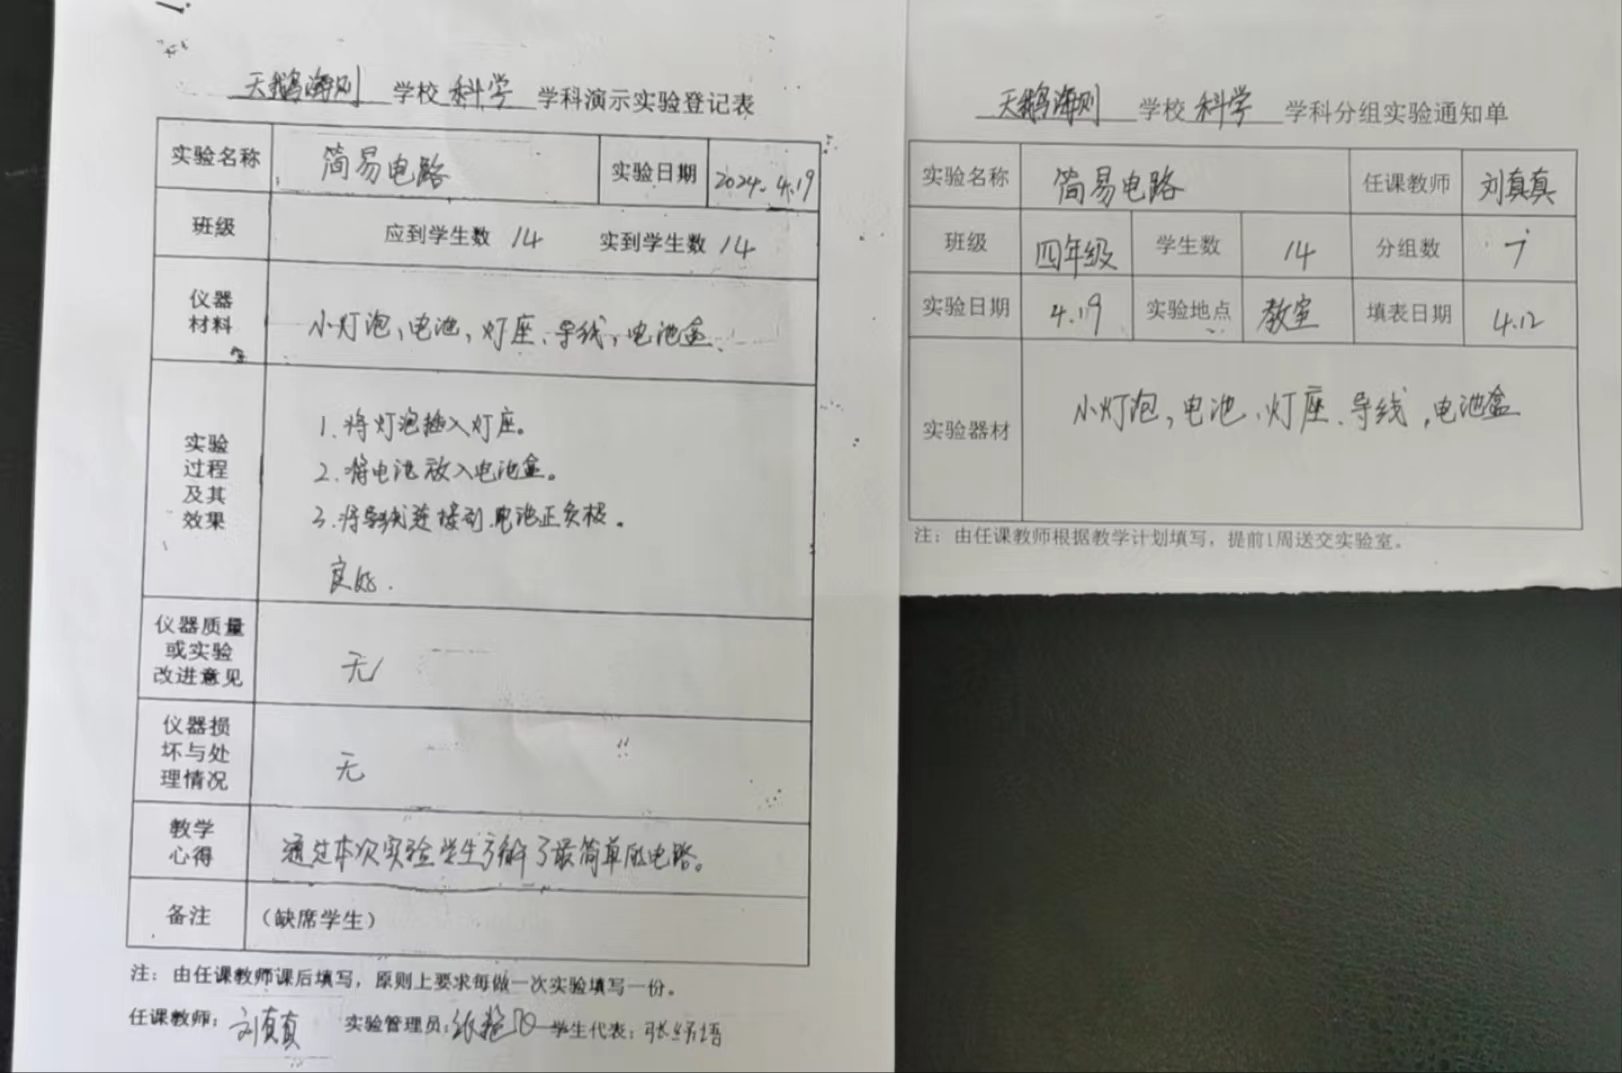 天鹅海则 学校 科学 学科演示实验登记表
实验名称 简易电路 实验日期 2024.4.19
班级 应到学生数 14 实到学生数 14
仪器
材料
小灯泡,电池,灯座、导线,电池盒.
实验
过程
及其
效果
1.将灯泡插入灯座。
2.将电池放入电池盒。
3.将导线连接到电池正负极。
良好.
仪器质量
或实验
改进意见
无
仪器损
坏与处
理情况
无
教学
心得
通过本次实验学生了解了最简单的电路。
备注 (缺席学生)
注: 由任课教师课后填写,原则上要求每做一次实验填写一份。
任课教师: 刘真真 实验管理员: 学生代表:
天鹅海则 学校 科学 学科分组实验通知单
实验名称 简易电路 任课教师 刘真真
班级 四年级 学生数 14 分组数 7
实验日期 4.19 实验地点 教室 填表日期 4.12
实验器材 小灯泡,电池、灯座、导线,电池盒
注: 由任课教师根据教学计划填写,提前1周送交实验室。